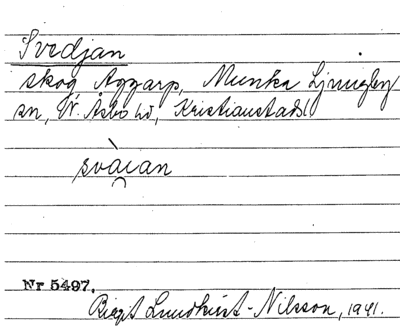 Svedjan
skog Aggarp, Munka Ljungby
sn, N. Åsbo hd, Kristianstads l
svàian
Nr 5497.
Birgit Lundkvist-Nilsson, 1941.